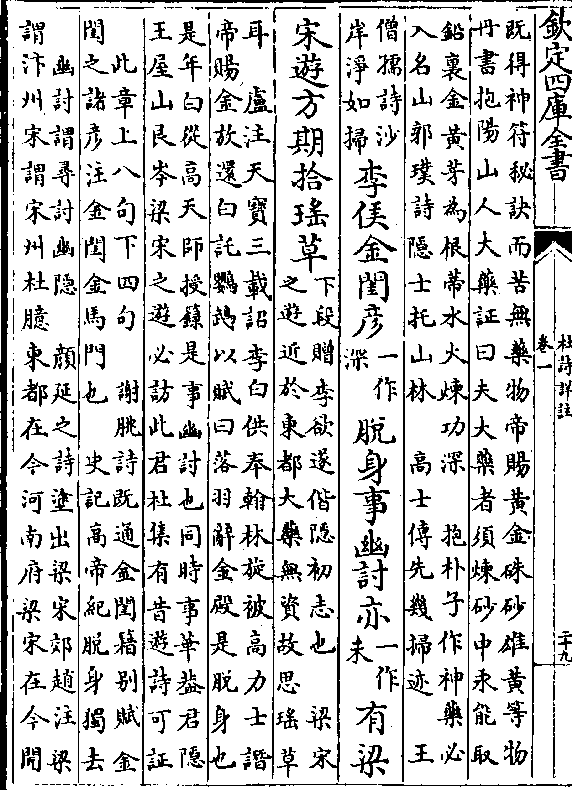 欽定四庫全書
杜詩詳註
卷一
二十九
既得神符秘訣而苦無藥物帝賜黃金硃砂雄黃等物
丹書抱陽山人大藥証曰夫大藥者須煉砂中汞能取
鉛裏金黃芽為根蒂水火煉功深 抱朴子作神藥必
入名山郭璞詩隱士托山林 高士傳先幾掃迹 王
僧孺詩沙
岸淨如掃
李侯金閨彥一作深脫身事幽討亦一作未有梁
宋遊方期拾瑤草
下段贈李欲遂偕隱初志也 梁宋
之遊近於東都大藥無資故思瑤草
耳 盧注天寶三載詔李白供奉翰林旋被高力士譖
帝賜金放還白託鸚鵡以賦曰落羽辭金殿是脫身也
是年白從高天師授籙是事幽討也同時事華蓋君隱
王屋山艮岑梁宋之遊必訪此君杜集有昔遊詩可証
此章上八句下四句 謝朓詩既通金閨籍别賦金
閨之諸彥注金閨金馬門也 史記高帝紀脫身獨去
幽討謂尋討幽隱 顏延之詩塗出梁宋郊趙注梁
謂汴州宋謂宋州杜臆東都在今河南府梁宋在今開